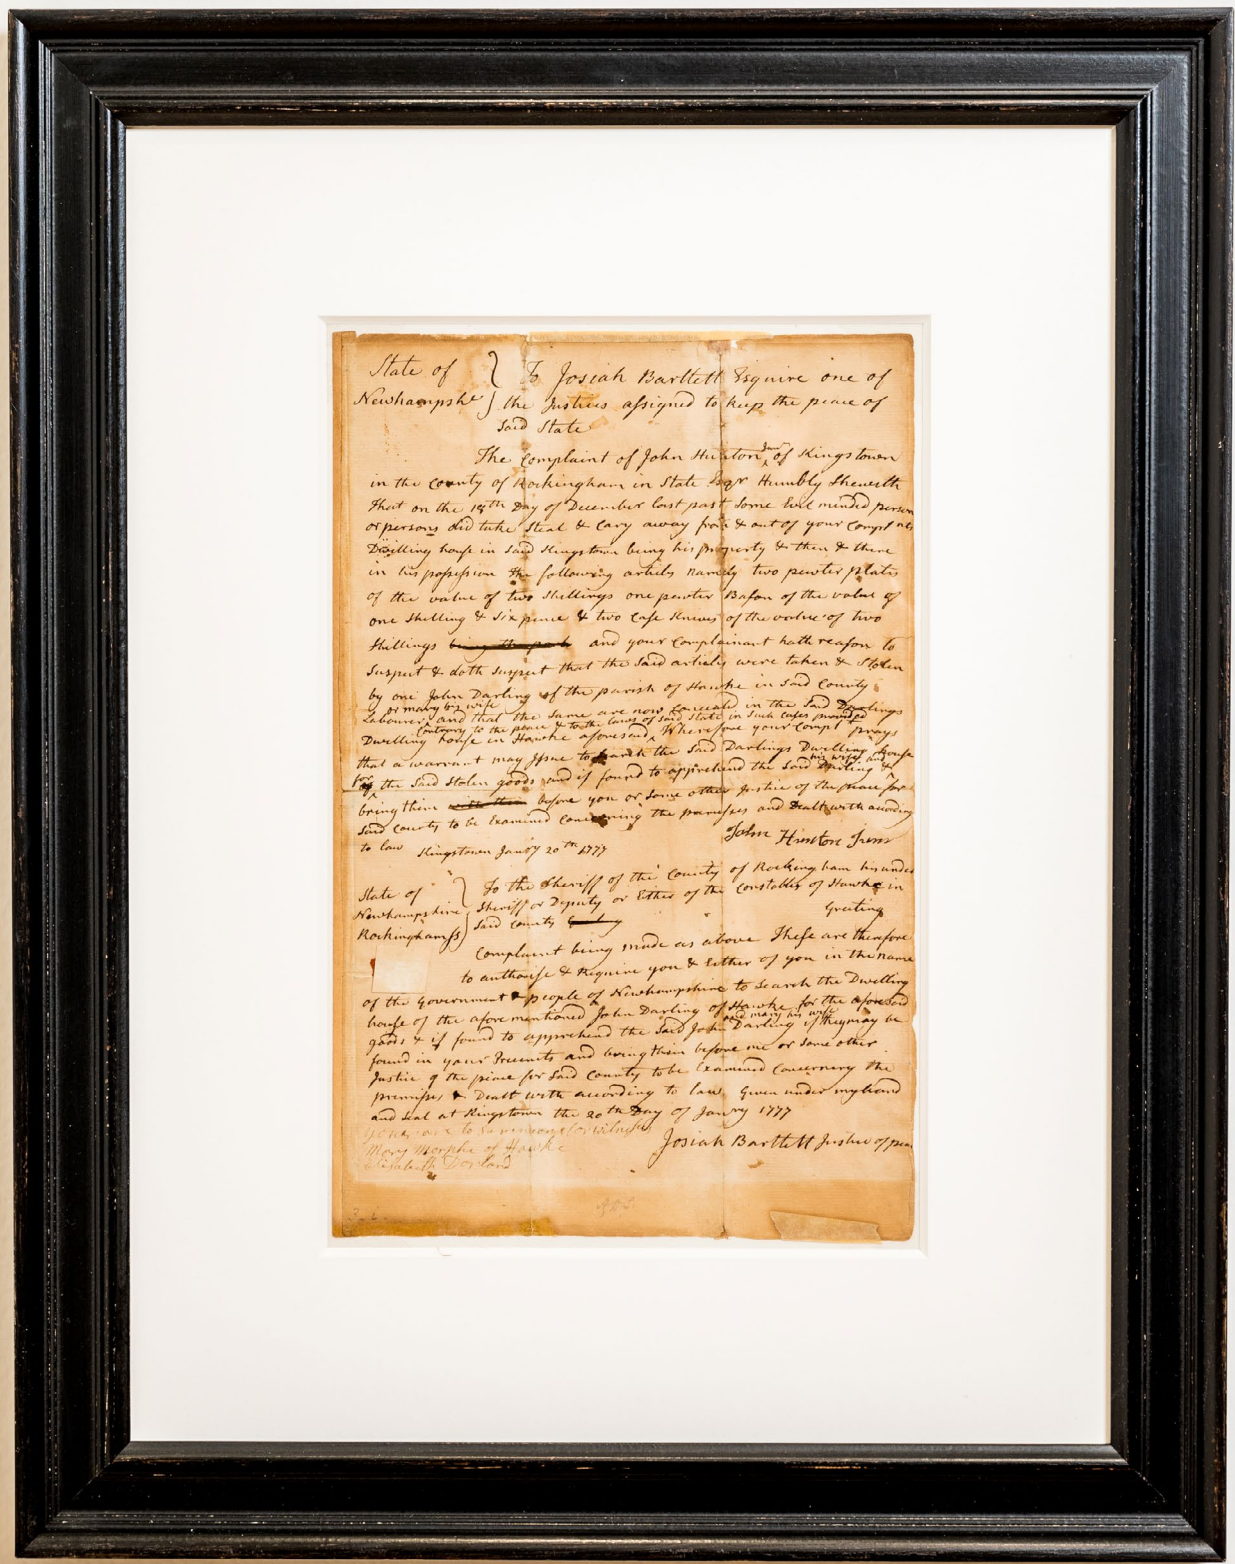 State of } To Josiah Bartlett Esquire one of
Newhampshe } the Justices assigned to keep the peace of
Said State
The Complaint of John Hunton Junr of Kingstown
in the County of Rockingham in State Esqr Humbly Sheweth
that on the 18th Day of December last past Some Evil minded person
or persons did take Steal & Cary away from & out of your Complnts
Dwelling house in Said Kingstown being his property & then & there
in his possession the following articles namely two pewter plates
of the value of two Shillings one pewter Bason of the value of
one Shilling & Six pence & two Case Knives of the value of two
Shillings and your Complainant hath reason to
Suspect & doth Suspect that the Said articles were taken & Stolen
by one John Darling of the parish of Hawke in Said County
or mary his wife
Labourer and that the Same are now Conceald in the Said Darlings
Contrary to the peace & to the laws of Said State in Such Cases provided
Dwelling house in Hawke aforesaid Wherefore your Complt prays
that a warrant may Issue to Search the Said Darlings Dwelling house
for the Said Stolen goods and if found to apprehend the Said Darling &
his wife and
bring them before you or Some other Justice of the peace for
Said County to be Examined Concerning the premises and Dealt with according
to law Kingstown Janry 20th 1777
John Hunton Junr
State of } To the Sheriff of the County of Rockingham his under
Newhampshire } Sheriff or Deputy or Either of the Constables of Hawke in
Rockingham Ss } Said County
Greeting
Complaint being made as above These are therefore
to authorise & Require you & Either of you in the name
of the Government & people of Newhampshire to Search the Dwelling
house of the afore mentioned John Darling of Hawke for the aforesaid
goods & if found to apprehend the Said John Darling if they may be
and mary his wife
found in your Precincts and bring them before me or Some other
Justice of the peace for Said County to be Examined Concerning the
premises & Dealt with according to law Given under my hand
and Seal at Kingstown the 20th Day of Janry 1777
you are to Summons for witness
Josiah Bartlett Justice of peace
Mary Morphe of Hawke
Elisabeth Dorland